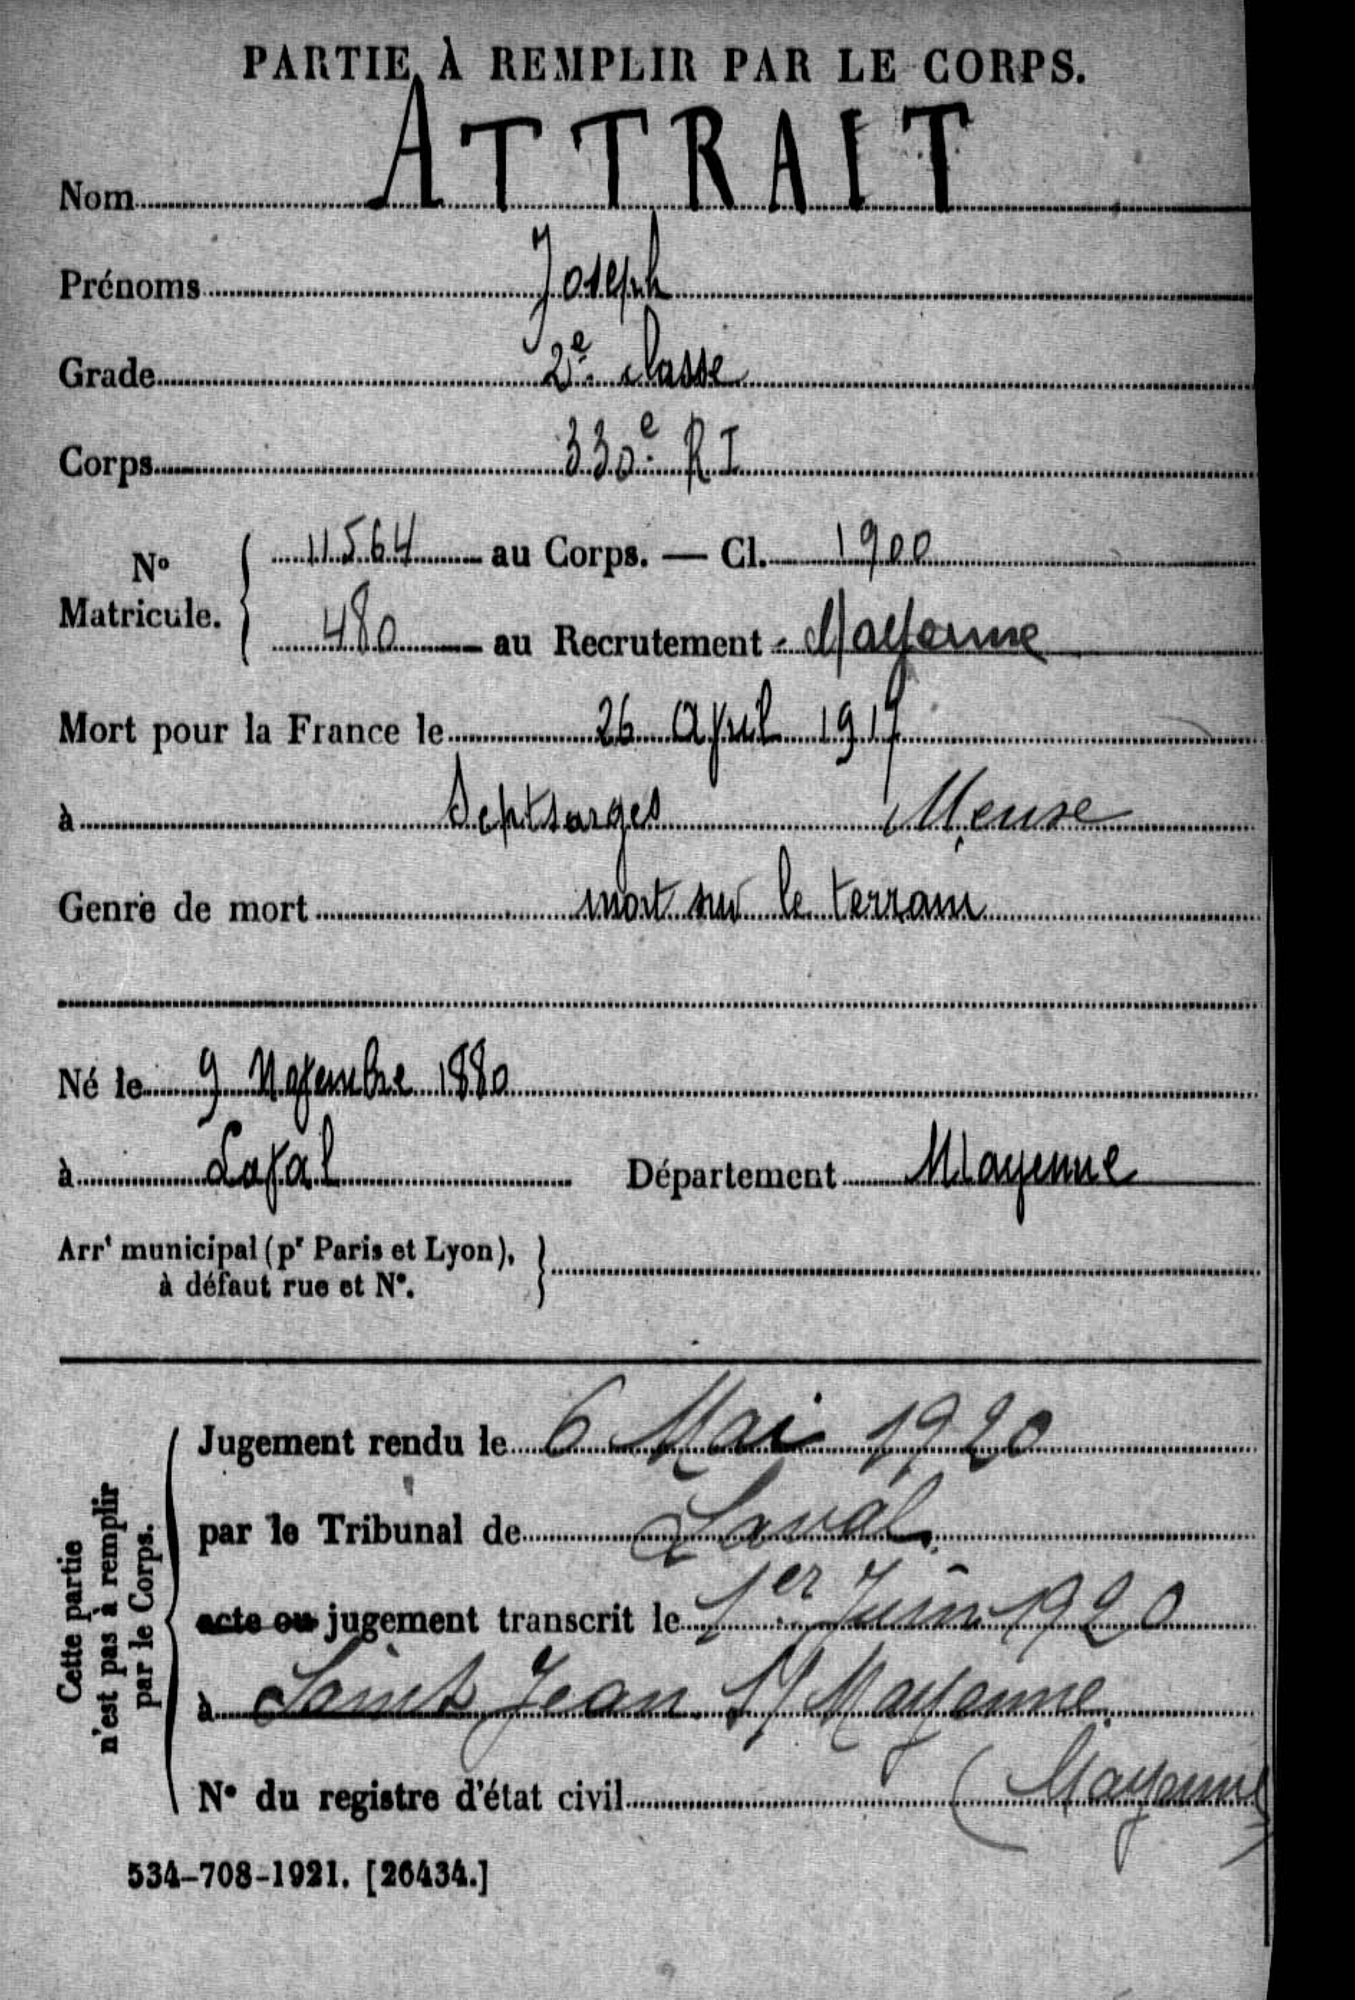 PARTIE À REMPLIR PAR LE CORPS.
Nom ATTRAIT
Prénoms Joseph
Grade 2e classe
Corps 330e R I
No Matricule. { 11564 au Corps. — Cl. 1900
480 au Recrutement - Mayenne
Mort pour la France le 26 avril 1917
à Septsarges Meuse
Genre de mort mort sur le terrain
Né le 9 Novembre 1880
à Laval Département Mayenne
Arrt municipal (pr Paris et Lyon), }
à défaut rue et No.
Cette partie
n'est pas à remplir
par le Corps.
Jugement rendu le 6 Mai 1920
par le Tribunal de Laval.
acte ou jugement transcrit le 1er Juin 1920
à Saint Jean s/ Mayenne
No du registre d'état civil (Mayenne)
534-708-1921. [26434.]